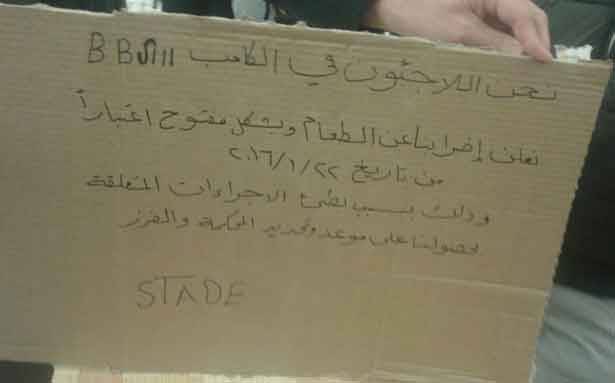 نحن اللاجئون في الكامب BBSIII
نعلن إضرابنا عن الطعام وبشكل مفتوح اعتباراً
من تاريخ ٢٠١٦/١/٢٢
وذلك بسبب بطئ الاجراءات المتعلقة
بحصولنا على موعد وتحديد المحكمة والفرز
STADE